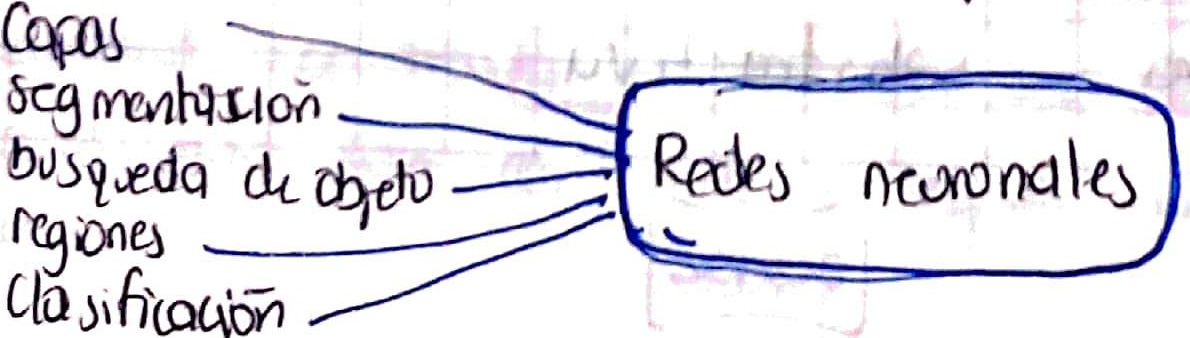 Capas
segmentasioñ
busqueda de objeto
regiones
Clasificación
Redes neuronales